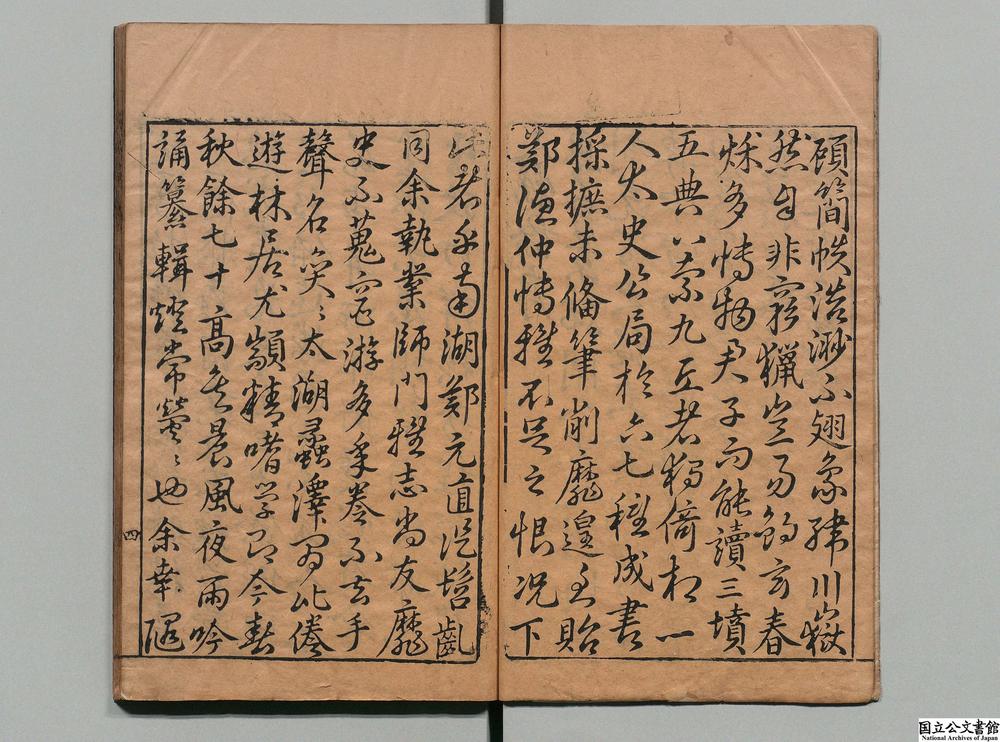 顧簡帙浩渺不翅象緯川嶽
然自非窮獵豈易飽玄春
秋多博物君子而能讀三墳
五典八索九丘者獨倚相一
人太史公局於六七種成書
採摭未備筆削靡遑至貽
鄭漁仲博雅不足之恨況下
此者乎南湖鄭元直從髫齔
同余執業師門雅志尚友靡
史不蒐宦游多年卷不去手
聲名奕〻太湖蠡澤間比倦
遊林居尤顓精嗜學即今春
秋餘七十高矣晨風夜雨吟
誦纂輯燈常熒〻也余幸
四
国立公文書館
National Archives of Japan